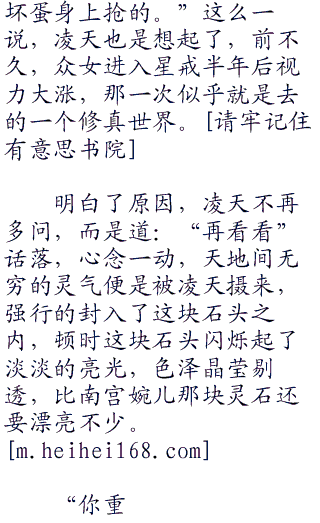 坏蛋身上抢的。”这么一
说，凌天也是想起了，前不
久，众女进入星戒半年后视
力大涨，那一次似乎就是去
的一个修真世界。[请牢记住
有意思书院]
明白了原因，凌天不再
多问，而是道：“再看看”
话落，心念一动，天地间无
穷的灵气便是被凌天摄来，
强行的封入了这块石头之
内，顿时这块石头闪烁起了
淡淡的亮光，色泽晶莹剔
透，比南宫婉儿那块灵石还
要漂亮不少。
[m.heihei168.com]
“你重